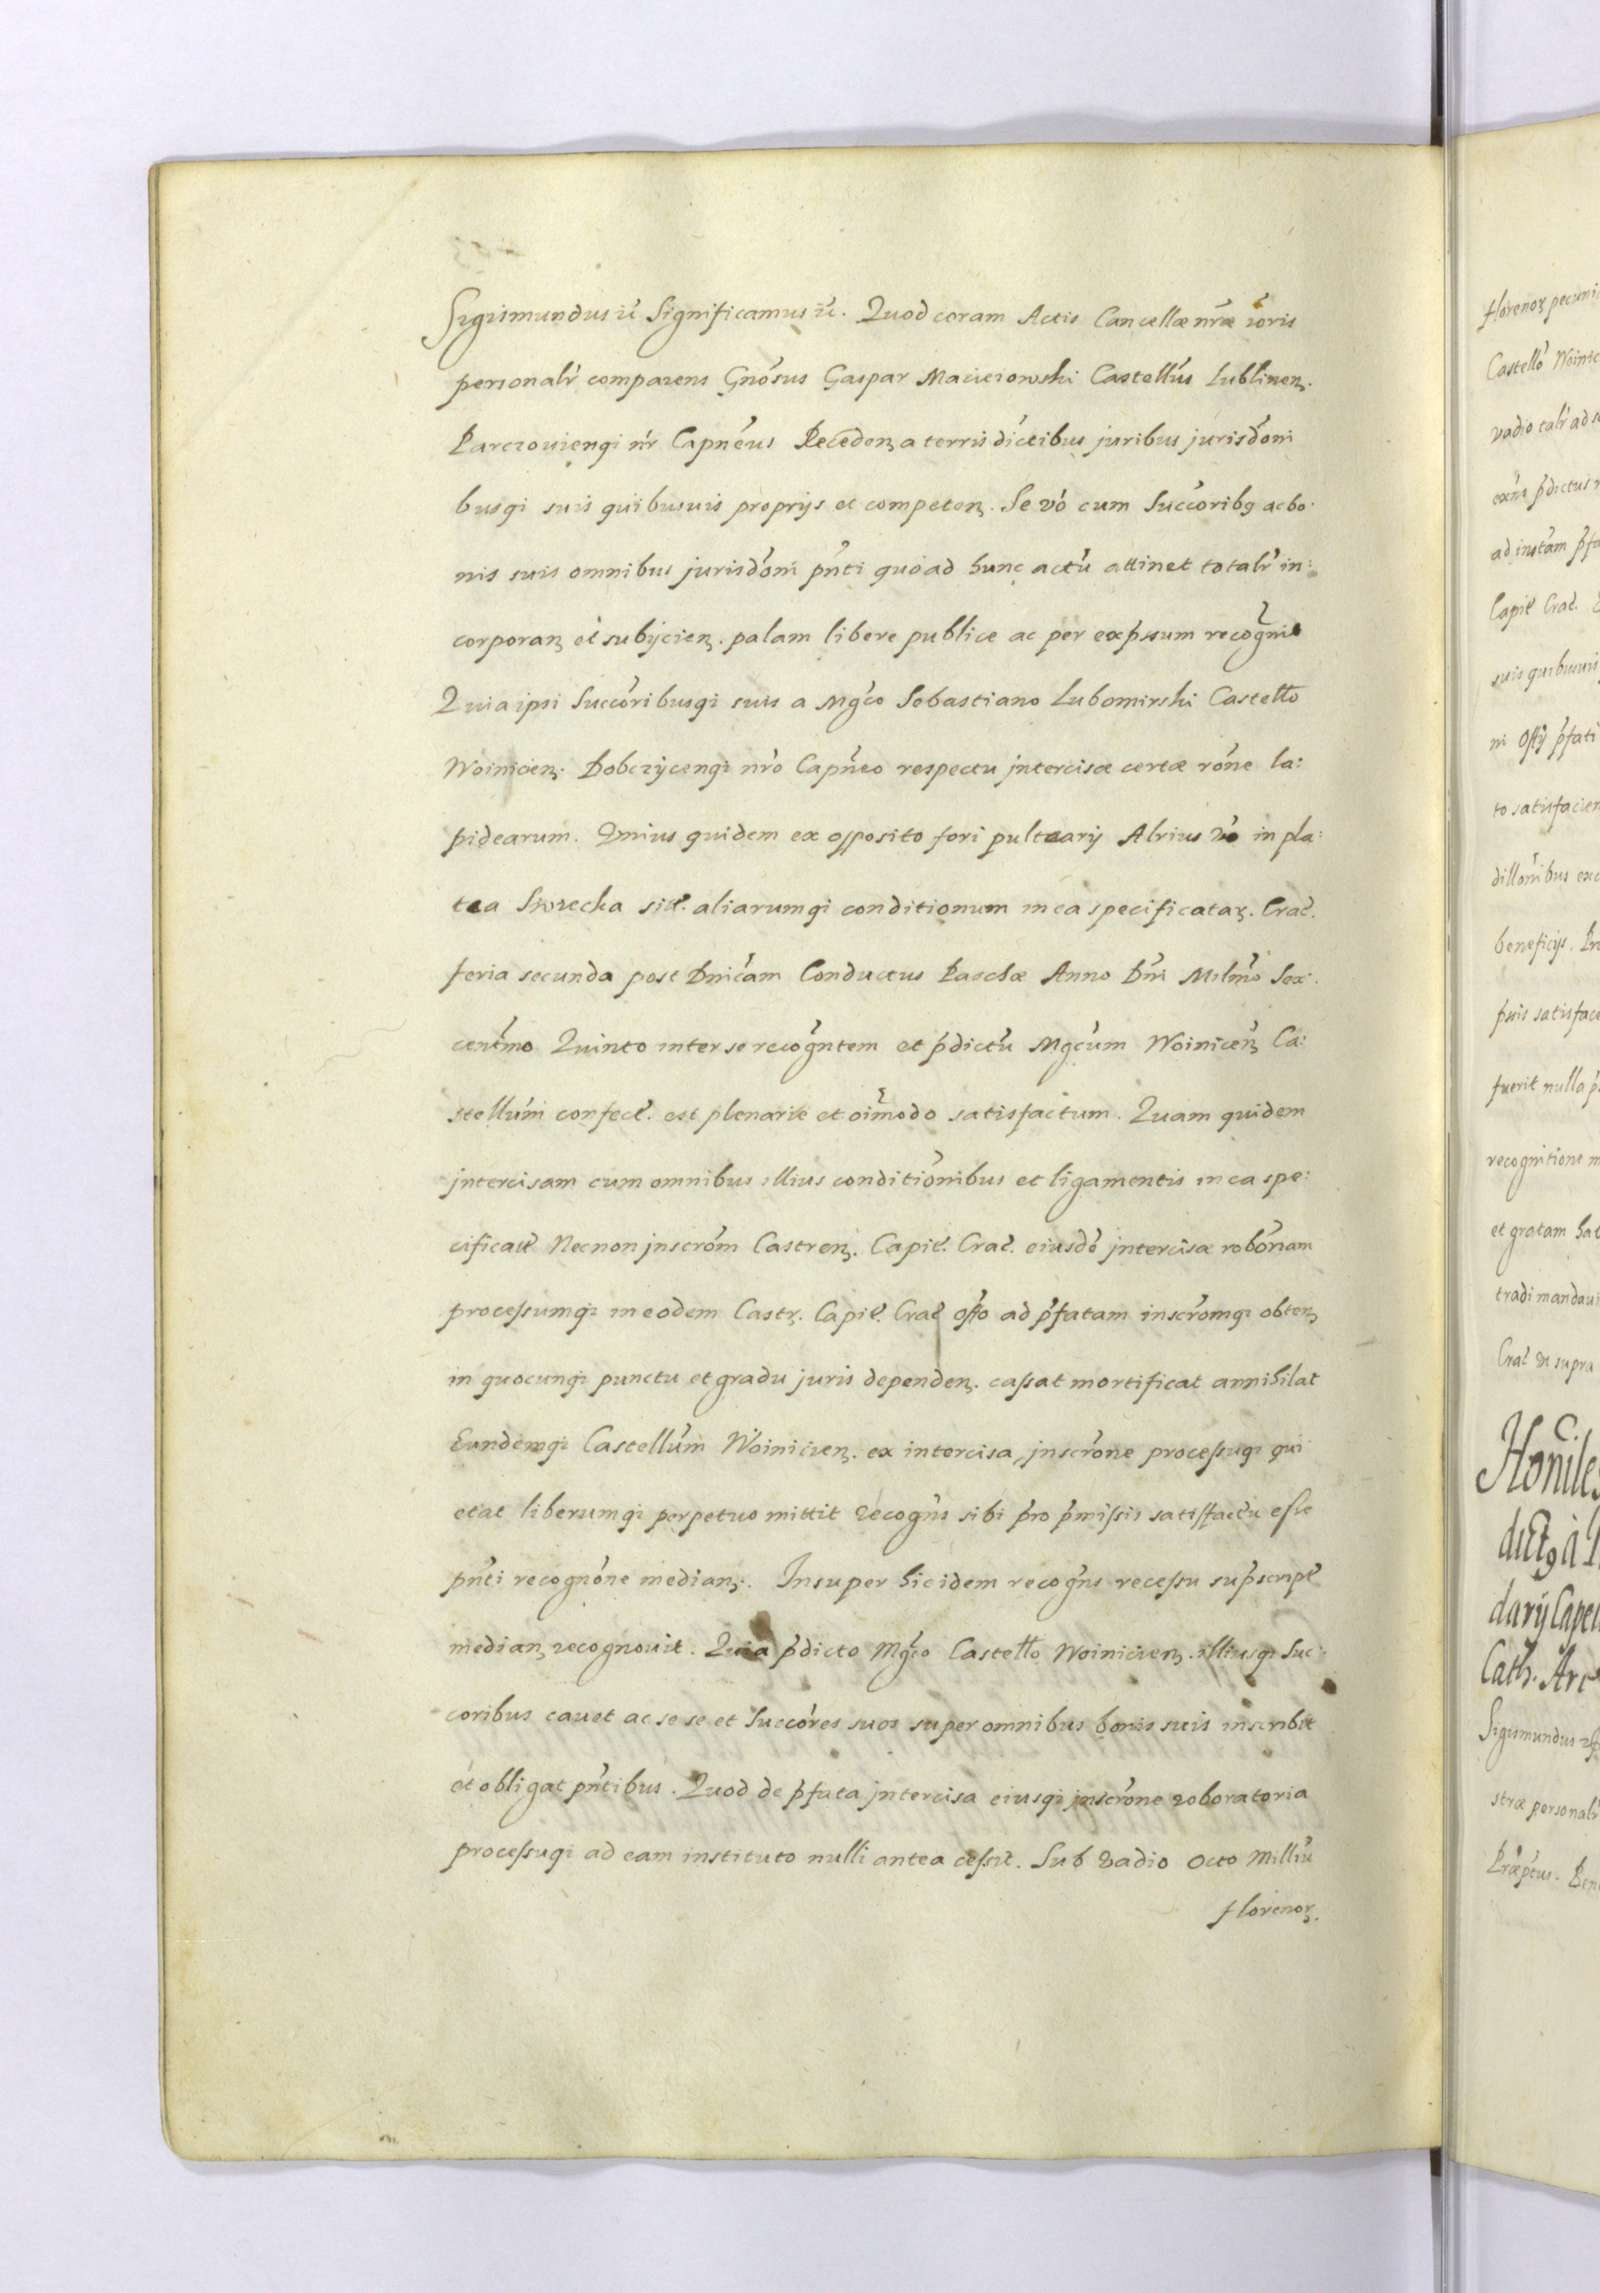 Sigismundus ꝛc̃ Significamus ꝛc̃. Quod coram Actis Cancellæ nr̃æ ꝛoris
personalr̃ comparens Gnõsus Gaspar Macieiowski Castellũs Lublinen̨.
Parczouienqi nr̃ Capnẽus Recẽden̨ a terris dictibus juribus jurisdõni
busqi suis quibusuis proprijs et competen̨. Se võ cum Succõribq̨ ac bo:
nis suis omnibus jurisdõni pñti quo ad hunc actũ attinet totalr̃ in:
corporan̨ et subijcien̨. palam libere publice ac per exp̃ssum recogñit
Quia ipsi Succõribusqi suis a Mgc̃o Sebastiano Lubomirski Castełło
Woinicien̨. Dobczycenqi nr̃o Capñeo respectu jntercisæ certæ rõne la:
pidearum. Vnius quidem ex opposito fori pulta­arij Alrius vo in pla:
tea Swiecka sit̃. aliarumqi conditionum in ea specificatar̨. Crac̃.
feria secunda post Dnic̃am Conductus Paschæ Anno Dñi Milmõ Sex:
centmõ Quinto inter se recogñtem et p̃dictũ Mgc̃um Woinicen̨ Ca:
stellũm confect̃. est plenarie et oim̃odo satisfactum. Quam quidem
jntercisam cum omnibus illius conditiõnibus et ligamentis in ea spe:
cificat̃ Necnon jnscrõm Castren̨. Capit̃. Crac̃. eiusdẽ jntercisæ robõriam
processumqi in eodem Castr̨. Capit̃. Crac̃ offo ad p̃fatam inscrõmqi obten̨
in quocunqi punctu et gradu juris dependen̨. cassat mortificat annihilat
Eundemqi Castellũm Woinicien̨. ex intercisa jnscrõne processuqi qui
etat liberumqi perpetuo mittit recogñs sibi pro p̃missis satisfactũ esse
pñti recognõne median̨. Insuper hic idem recogñs recessu sup̃script̃
median̨ recognouit. Quia p̃dicto Mgc̃o Castełło Woinicien̨. illiusqi Suc:
coribus cauet ac se se et Succõres suos super omnibus bonis suis inscribit
et obligat pñtibus. Quod de p̃fata jntercisa eiusqi jnscrõne roboratoria
processuqi ad eam instituto nulli antea cessit. Sub vadio Octo Milliũ
florenor̨.
florenor̨ pecuni
Castello Woinic
vadio talr̃ ad s
p̃dictus
ad instam p̃fa
Capit̃ Crac̃.
suis quibusuis
ni Offij p̃fati
to satisfacien
dillõnibus exc
beneficijs.
p̃uis satisface
fuerit nulla p̃
recognitione m
et gratam hab
tradi mandaui
Crac̃ vt supra
Honiles
dictq̨ à
darij Capel
Cath. Arc
Sigismundus ꝛc̃
stræ personalr̃
Præptus. Ben